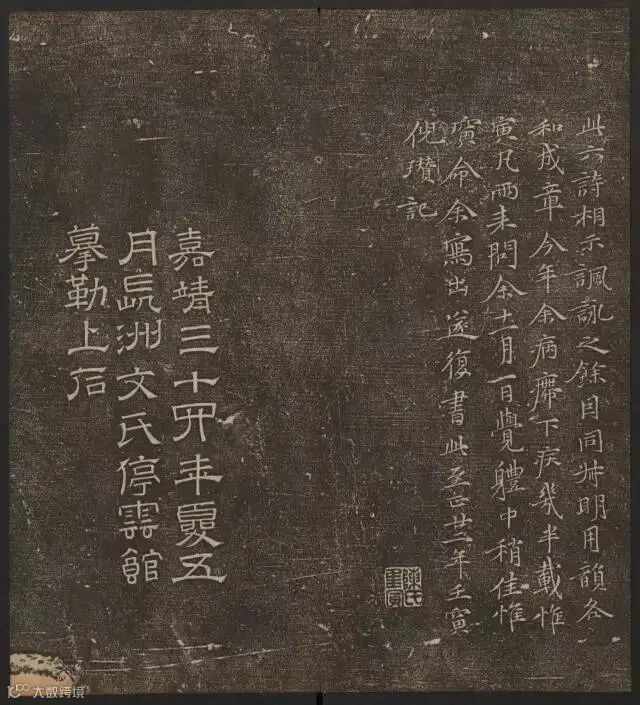 此六詩相示諷詠之餘因同叔明用韻各
和成章今年余病滯下疾幾半載惟
寅凡兩來問余十一月一日覺體中稍佳惟
寅命余寫出遂復書此至正廿二年壬寅
倪瓚記
嘉靖三十四年夏五
月長洲文氏停雲館
摹勒上石
大数跨境